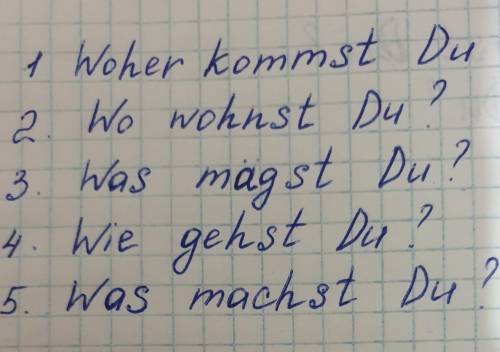 1 Woher kommst Du
2. Wo wohnst Du?
3. Was magst Du?
4. Wie gehst Du?
5. Was machst Du?